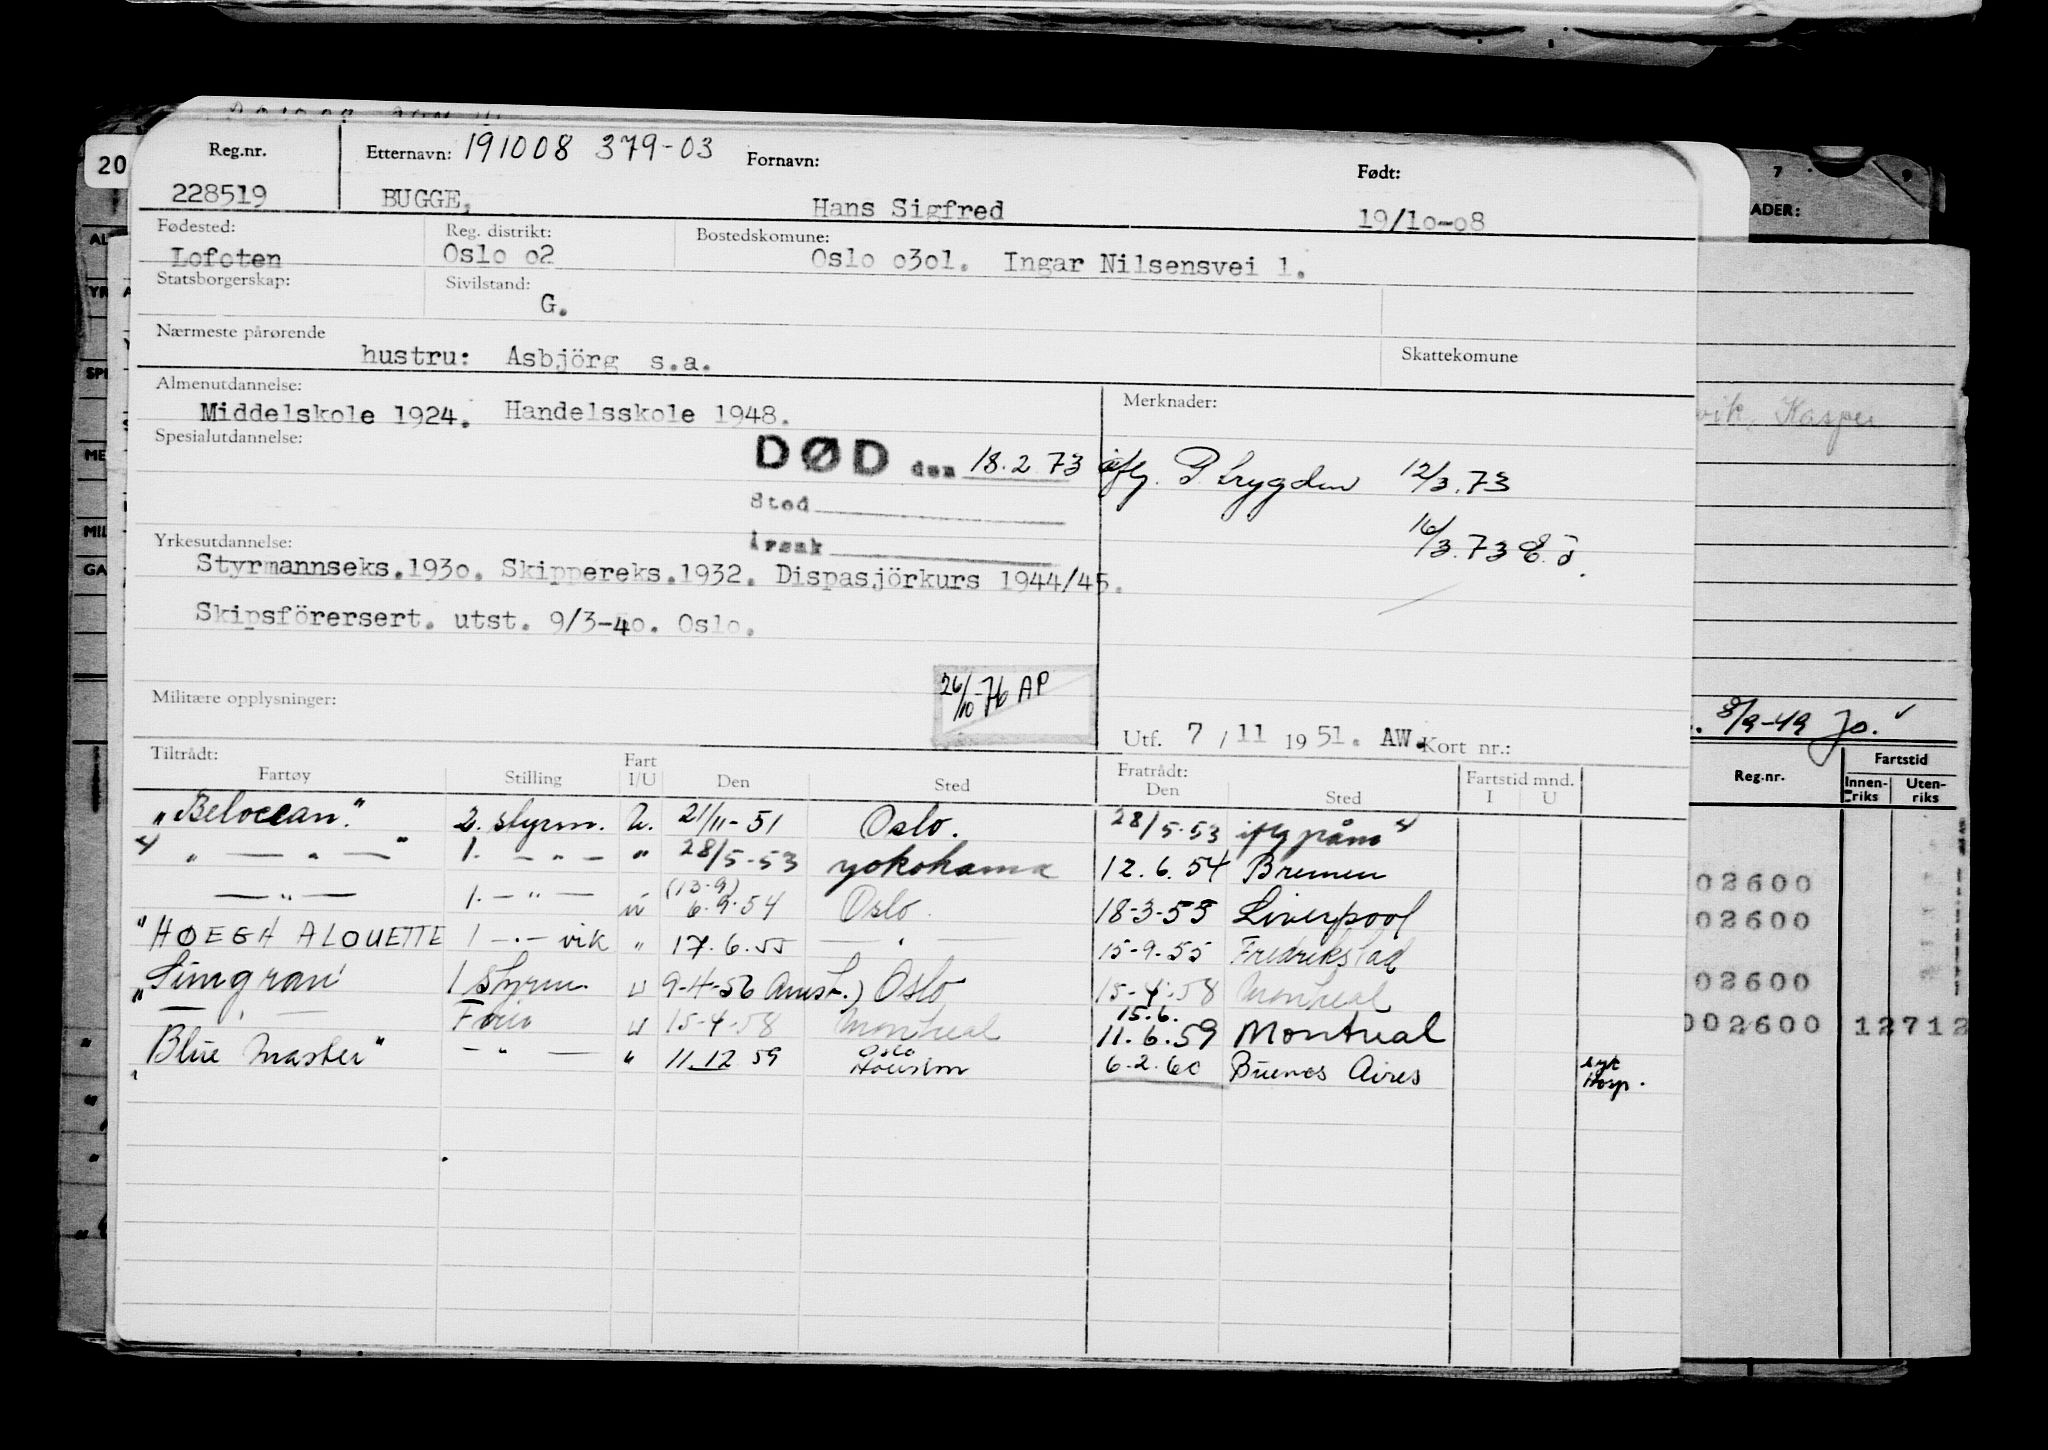 Reg.nr. Etternavn: 191008 379-03 Fornavn: Født:
228519 BUGGE, Hans Sigfred 19/10-08
Fødested: Reg. distrikt: Bostedskomune:
Lofoten Oslo o2 Oslo o3o1. Ingar Nilsensvei 1.
Statsborgerskap: Sivilstand:
G.
Nærmeste pårørende Skattekomune
hustru: Asbjörg s.a.
Almenutdannelse: Merknader:
Middelskole 1924. Handelsskole 1948.
Spesialutdannelse:
DØD den 18.2 73 iflg. P. Trygden 12/3.73
Sted
Årsak 16/3.73 E.J.
Yrkesutdannelse:
Styrmannseks.193o. Skippereks.1932. Dispasjörkurs 1944/45.
Skipsförersert. utst. 9/3-4o. Oslo.
26/10-76 AP
Militære opplysninger:
Utf. 7 / 11 19 51. AW. Kort nr.:
Tiltrådt: Fratrådt:
Fartøy Stilling Fart I/U Den Sted Den Sted Fartstid mnd. I U
"Belocean." 2. styrm. U. 21/11-51 Oslo. 28/5-53 iflg påm
" — " — " 1. - " - " 28/5-53 Yokohama 12.6.54 Bremen
— " — 1. - " - (13-9) 6.9.54 Oslo. 18-3-55 Liverpool
"HØEGH ALOUETTE 1 - " - vik " 17.6.55 — " — 15-9.55 Fredrikstad
"Simgran" 1 styrm. U 9-4-56 Amst.) Oslo 15-4-58 Montreal
— " — Fører U 15-4-58 Montreal 15.6. 11.6.59 Montreal
"Blue Master" — " — " 11.12 59 Oslo Houston 6-2.60 Buenos Aires syk Hosp.
20
7 9
ADER:
vik, Kasper
8/9-49 Jo.
Reg.nr. Fartstid
Innen-riks Uten-riks
02600
02600
02600
002600 12712